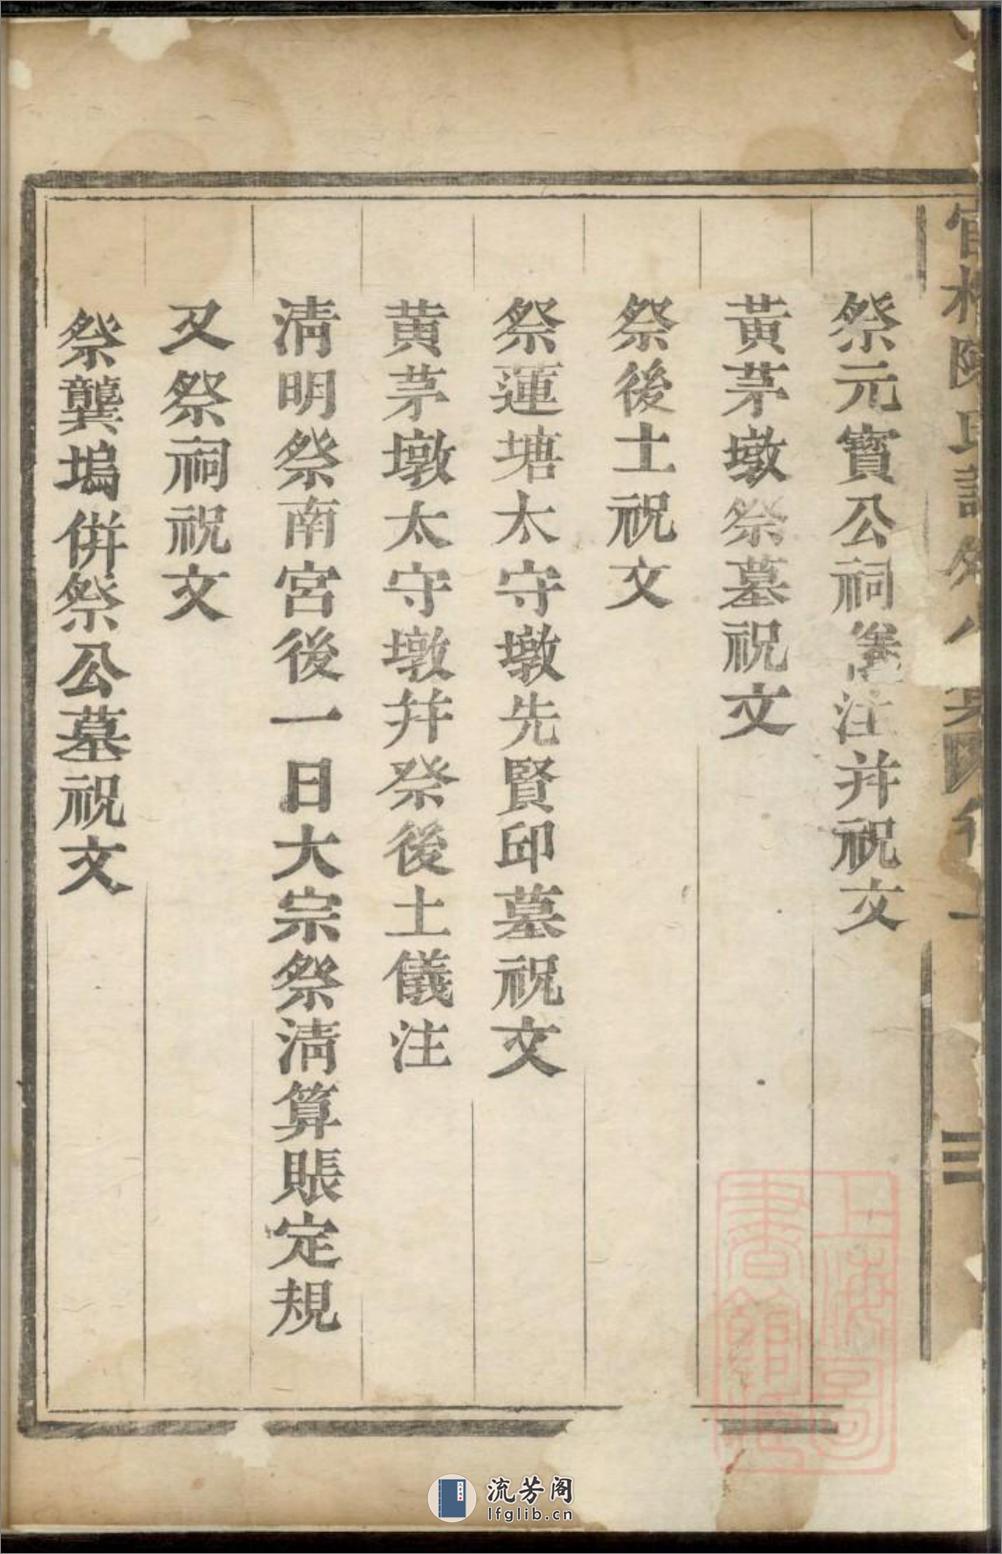 祭元寳公祠注并祝文
黃茅墩祭墓祝文
祭後土祝文
祭蓮塘太守墩先賢邱墓祝文
黃茅墩太守墩并祭後土儀注
淸明祭南宮後一日大宗祭淸算賬定規
又祭祠祝文
祭龔塢併祭公墓祝文
三
上海圖
書館藏
流芳阁
lfglib.cn